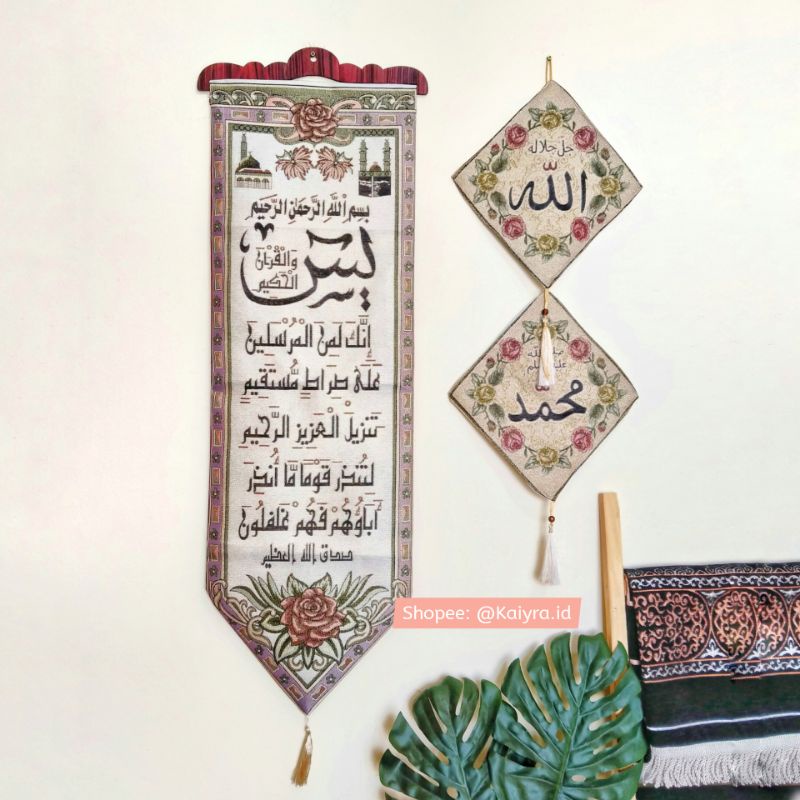 بِسْمِ اللَّهِ الرَّحْمَٰنِ الرَّحِيمِ
يس
وَالْقُرْآنِ
الْحَكِيمِ
إِنَّكَ لَمِنَ الْمُرْسَلِينَ
عَلَىٰ صِرَاطٍ مُّسْتَقِيمٍ
تَنزِيلَ الْعَزِيزِ الرَّحِيمِ
لِتُنذِرَ قَوْمًا مَّا أُنذِرَ
آبَاؤُهُمْ فَهُمْ غَافِلُونَ
صدق الله العظيم
جل جلاله
الله
صلى الله
عليه وسلم
محمد
Shopee: @Kaiyra.id